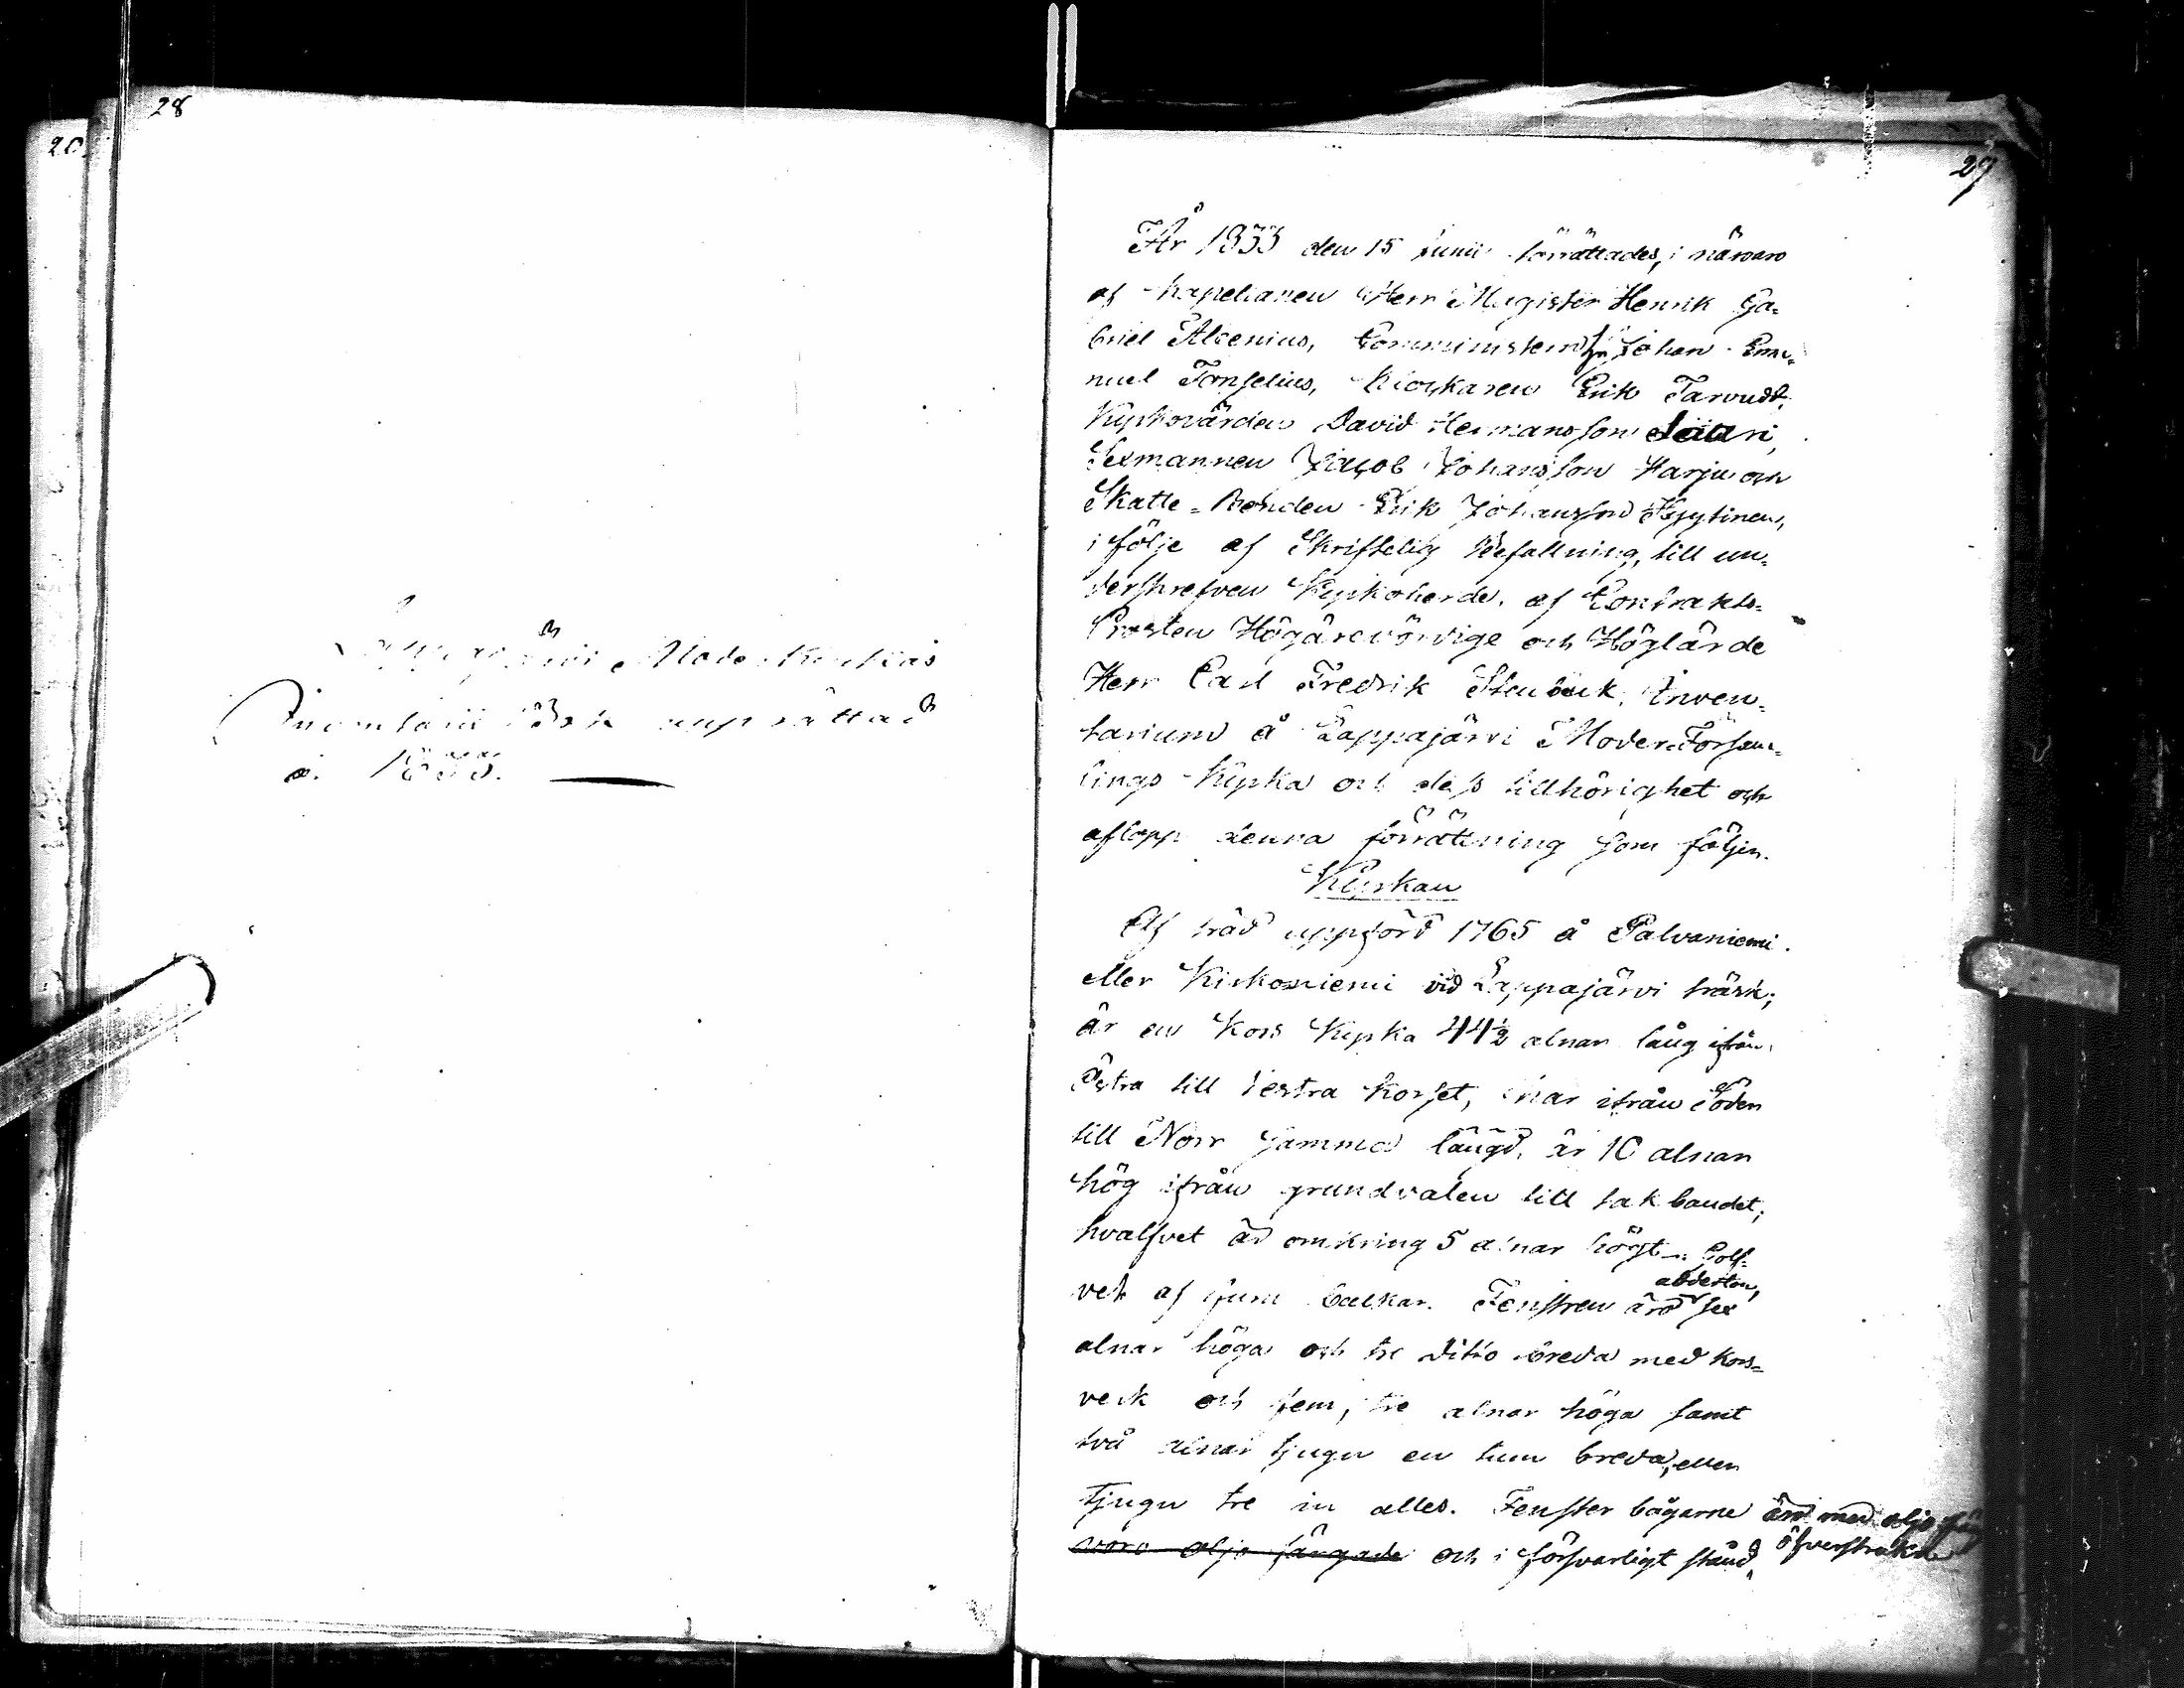 28
20
Lappajärvi Moderkyrkas
Inventarii Bok upprättad
a. 1833.
29
År 1833 den 15 Junii förrättades, i närvaro
af Kapellanen Herr Magister Henrik Ga=
briel Alcenius, Comministern Hr Johan Ema=
nuel Forselius, Klockaren Erik Tarvudd,
Kyrkovärden David Hermansson
Sexmannen Jacob Johansson Harju och
Skatte=Bonden Erik Johansson Hyytinen,
i följe af Skriftelig Befallning, till un=
derskrefven Kyrkoherde, af Contrakts=
Prosten Högärevördige och Höglärde
Herr Carl Fredrik Stenbäck, Inven=
tarium å Lappajärvi Moder Försam=
lings Kyrka och dess tillhörighet och
aflopp denna förrättning som följer.
Kyrkan
Af träd uppförd 1765 å Palvaniemi
eller Kirkoniemi vid Lappajärvi träsk;
är en Kors Kyrka 44½ alnar lång ifrån
Östra till Vestra Korset, har ifrån Söder
till Norr samma längd, är 10 alnar
hög ifrån grundvalen till takbandet;
hvalfvet är omkring 5 alnar högt. Golf=
aderton,
vet af furu balkar. Fenstren äro sex
alnar höga och tre ditto breda med kors=
verk och fem, tre alnar höga samt
två alnar tjugu en tum breda, eller
Tjugu tre in alles. Fenster bågarne äro med olje färg
voro olje färgade och i försvarligt stånd. öfverstrukna